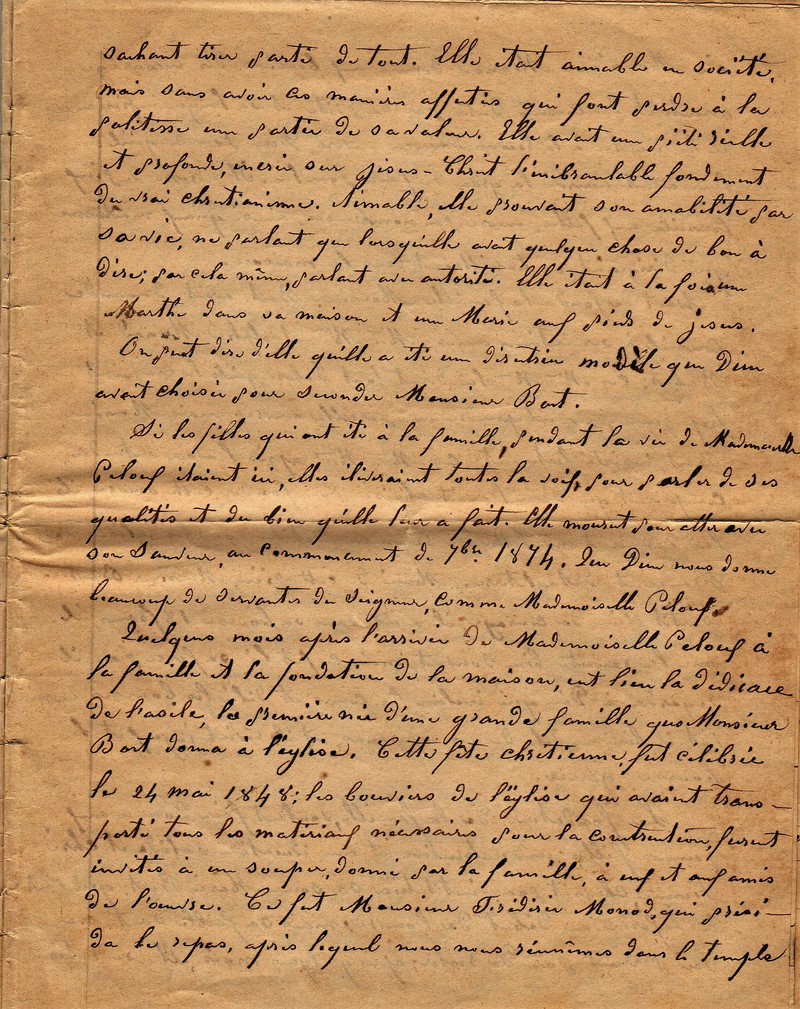 sachant tirer partie de tout. Elle était aimable en société,
mais sans avoir ces manières affectées qui font perdre à la
politesse une partie de sa valeur. Elle avait une piété réelle
et profonde, ancrée sur Jésus-Christ l'inébranlable fondement
du vrai christianisme. Aimable, elle prouvait son amabilité par
sa vie, ne parlant que lorsqu'elle avait quelque chose de bon à
dire; par cela même, parlant avec autorité. Elle était à la fois une
Marthe dans sa maison et une Marie aux pieds de Jésus.
On peut dire d'elle qu'elle a été une directrice modèle que Dieu
avait choisie pour seconder Monsieur Bost.
Si les filles qui ont été à la famille, pendant la vie de Mademoiselle
Peloux étaient ici, elles élèveraient toutes la voix, pour parler de ses
qualités et du bien qu'elle leur a fait. Elle mourut pour aller avec
son Sauveur, au commencement de 7bre 1874. Que Dieu nous donne
beaucoup de servantes du Seigneur, comme Mademoiselle Peloux.
Quelques mois après l'arrivée de Mademoiselle Peloux à
la famille et la fondation de la maison, eut lieu la dédicace
de l'asile, la première née d'une grande famille que Monsieur
Bost donna à l'église. Cette fête chrétienne, fut célébrée
le 24 mai 1848; les bouviers de l'église qui avaient trans-
porté tous les matériaux nécessaires pour la construction, furent
invités à un souper, donné par la famille, à eux et aux amis
de l'œuvre. Ce fut Monsieur Frédéric Monod, qui prési-
da le repas, après lequel nous nous réunîmes dans le temple